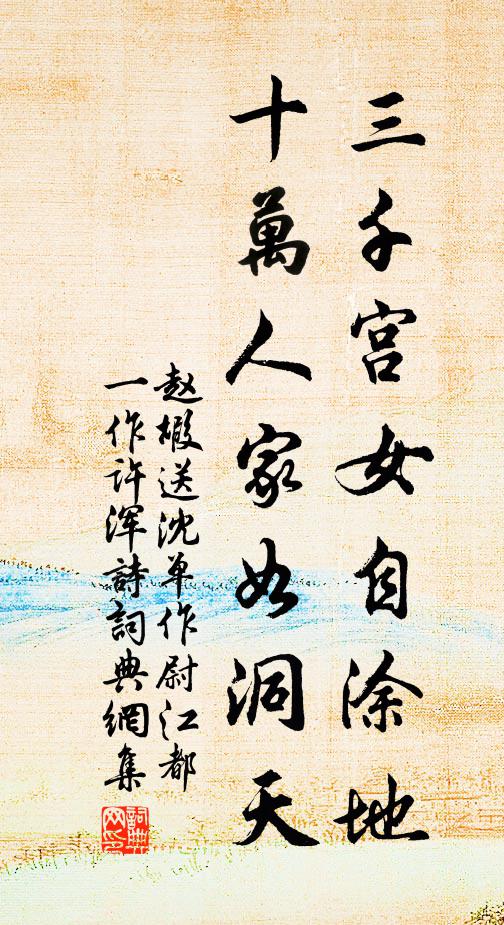 三千宫女自涂地
十萬人家如洞天
赵嘏送沈单作尉江都
一作许浑詩詞典網集
詞典網印